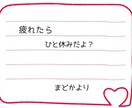 疲れたら
ひと休みだよ？
まどかより